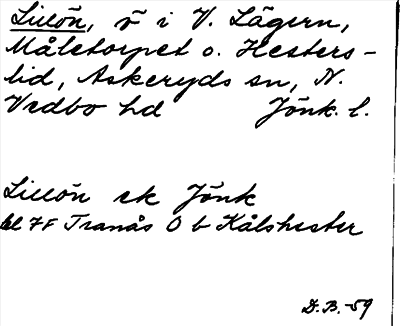 Lillön, ö i V. Lägern,
Måletorpet o. Hesters-
lid, Askeryds sn, N.
Vedbo hd Jönk. l.
Lillön ek Jönk
bl 7F Tranås O b Kålshester
D.B.-59